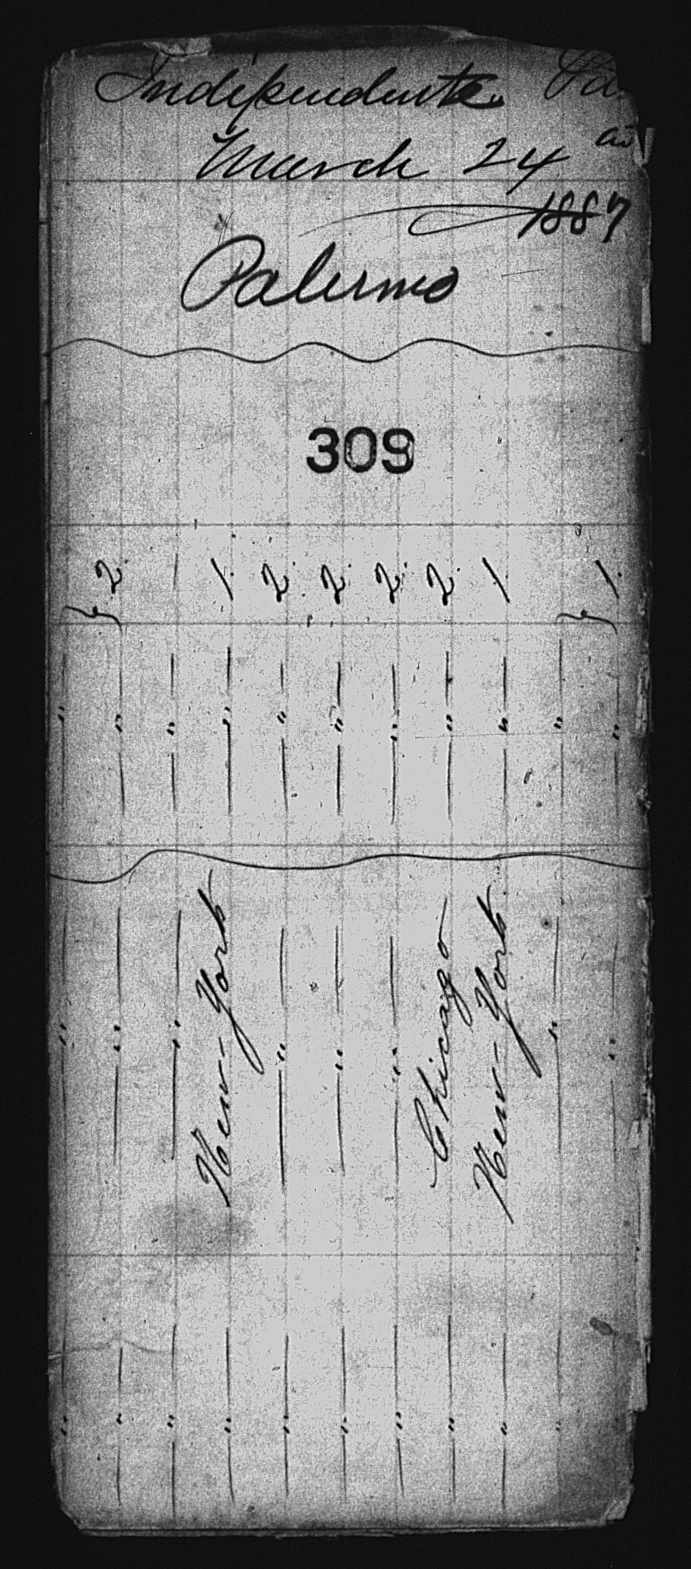 Independente
March 24
1887
Palermo
309
2 1 2 2 2 2 1 1
" " " " " " " " " " "
" " " New-York " " " Chicago New-York " "
" " " " " " " " " "